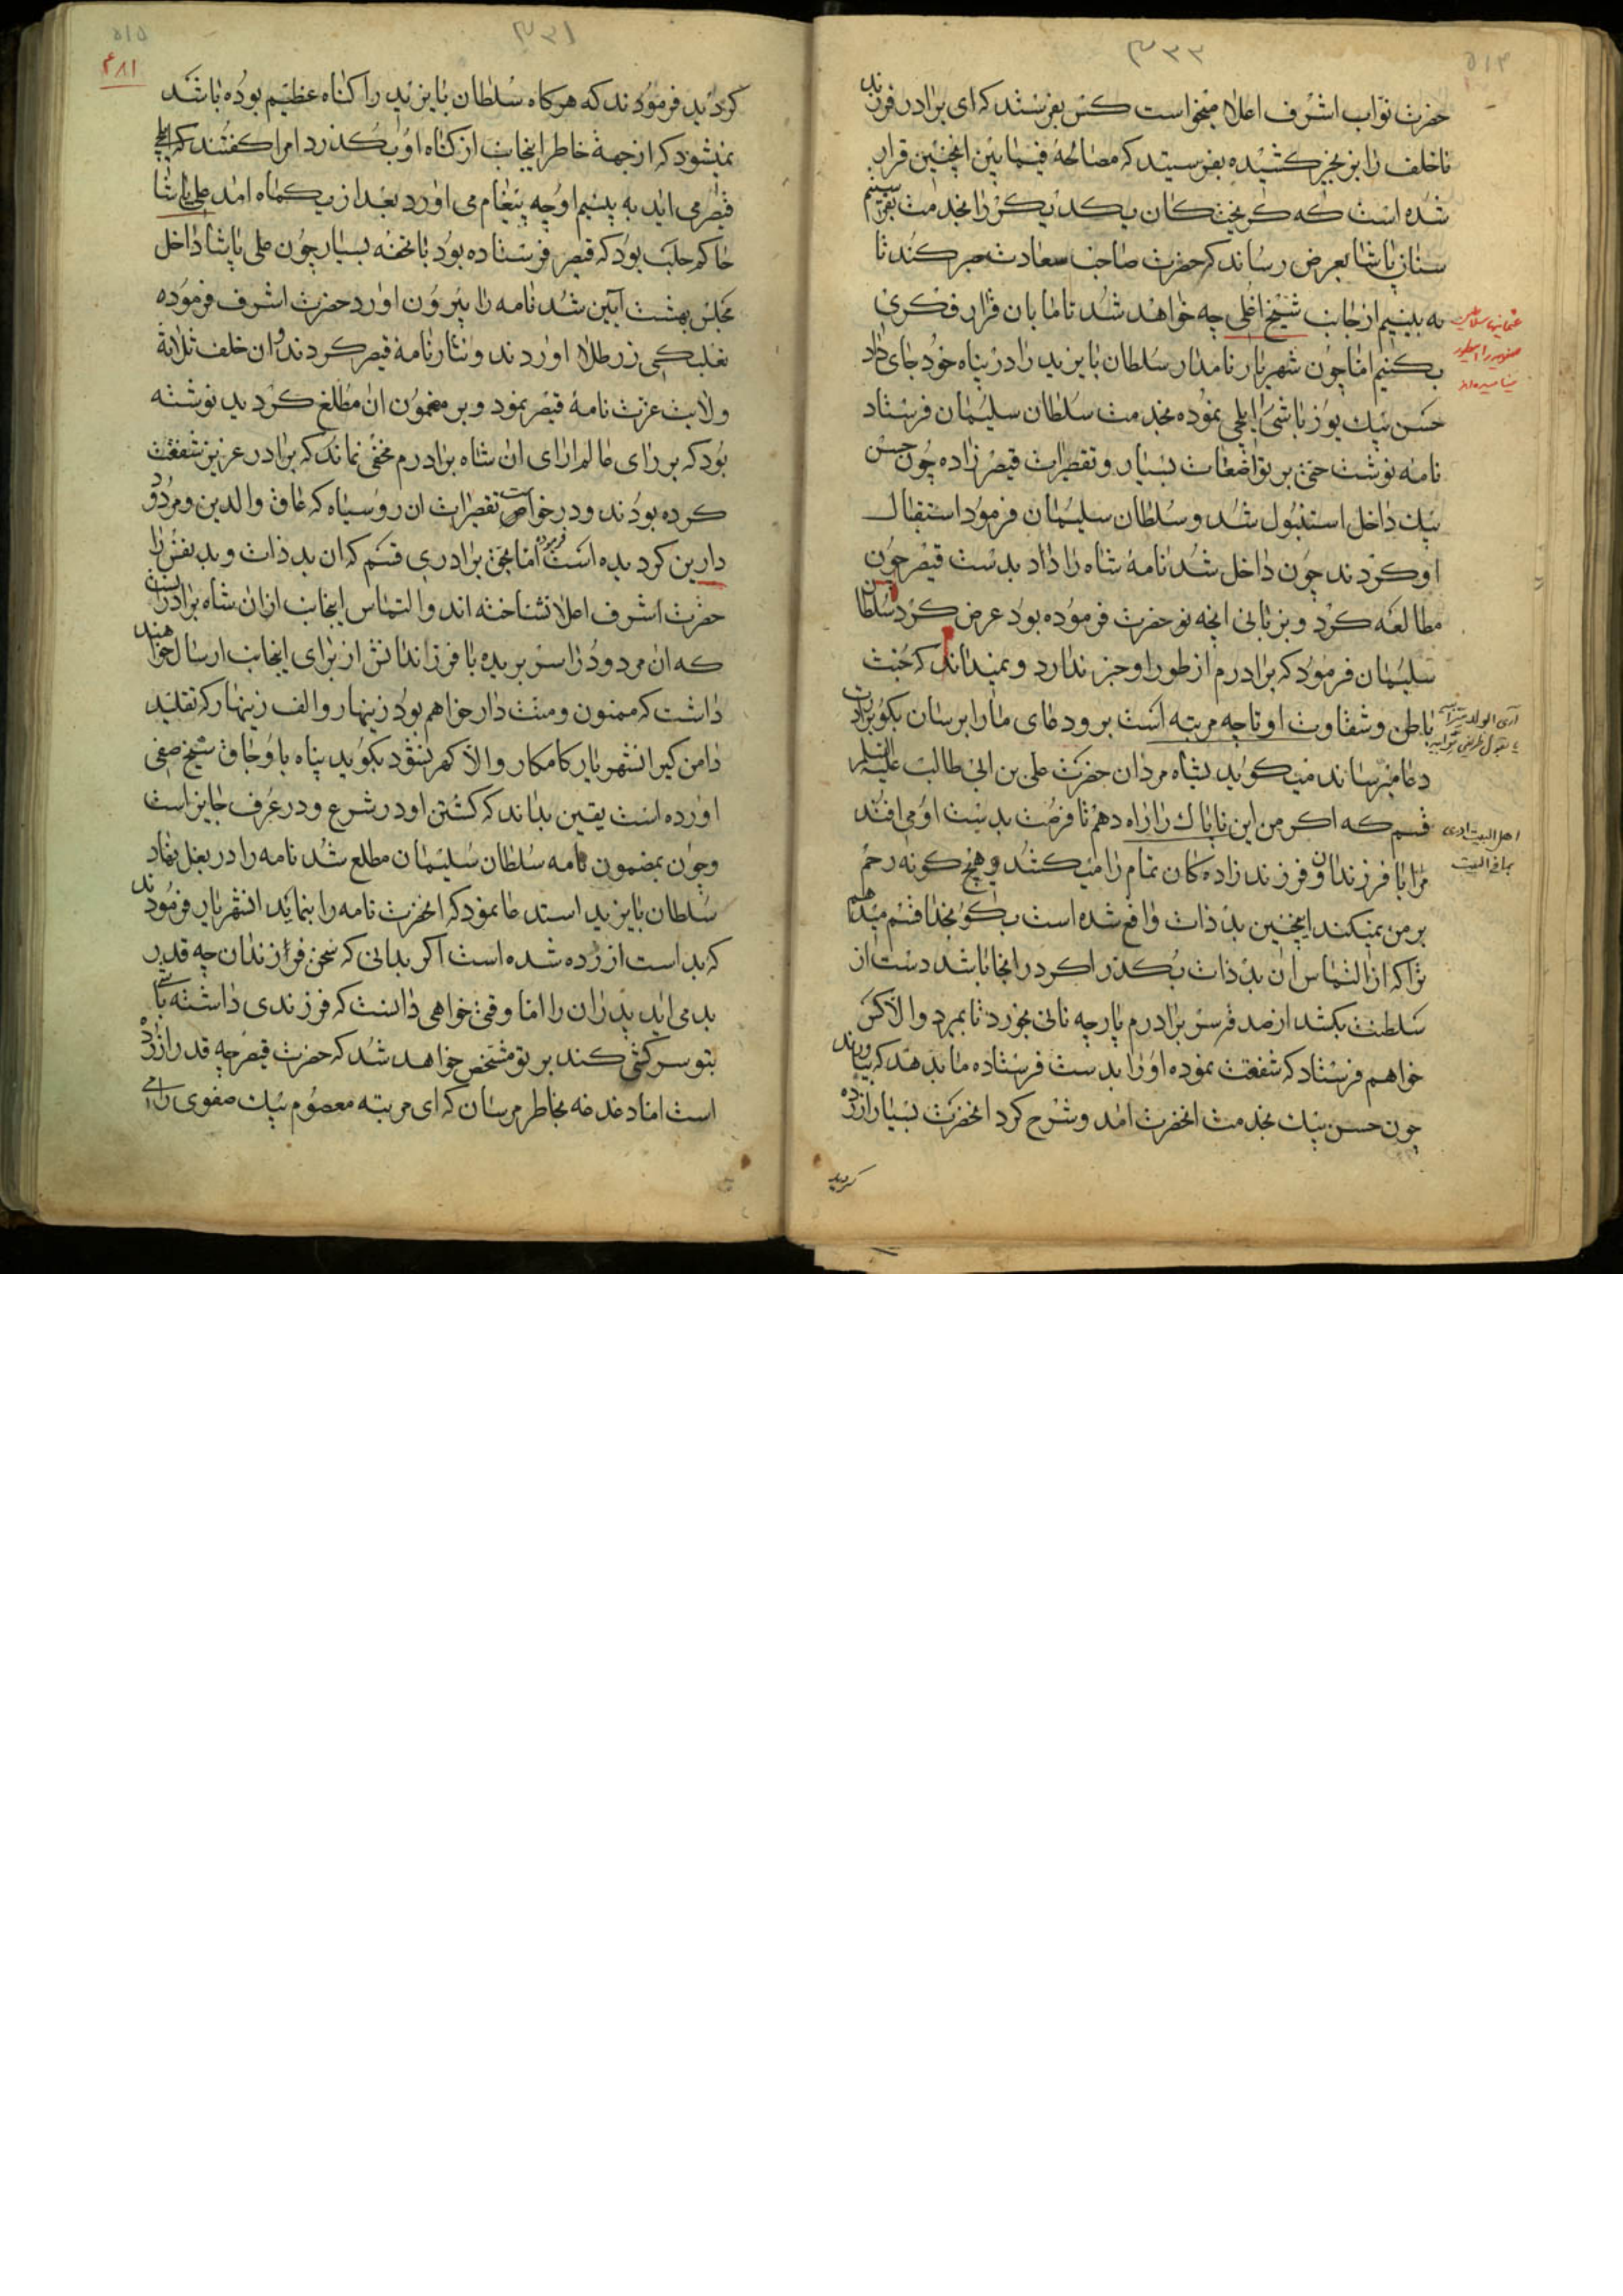 حضرت نواب اشرف اعلا میخواست کس بفرستد که ای برادر فرزند
ناخلف را بزنجیر کشیده بفرستید که مصالحه فیمابین اینچنین قرار
شده است که گریختکان یکدیکر را بخدمت بفرستیم
سنان پاشا بعرض رساند که حضرت صاحب سعادت صبر کند تا
به بینیم از جانب شیخ اغلی چه خواهد شد تا ما بان قرار فکری
بکنیم اما چون شهریار نامدار سلطان بایزید را در پناه خود جای داد
حسن بیک یوزباشی را ایلچی نموده بخدمت سلطان سلیمان فرستاد
نامه نوشت حتی بر تواضعات بسیار و تقصیرات قیصر زاده چون حسن
بیک داخل استنبول شد و سلطان سلیمان فرمود استقبال
او کردند چون داخل شد نامهٔ شاه را داد بدست قیصر چون
مطالعه کرد و بزبانی انچه نو حضرت فرموده بود عرض کرد سلطان
سلیمان فرمود که برادرم از طور او خبر ندارد و نمیداند که خبث
باطن و شقاوت او تا چه مرتبه است برو دعای ما را برسان بکو برادرت
دعا میرساند میکوید بشاه مردان حضرت علی بن ابی طالب علیه السلم
قسم که اکر من این ناپاک را راه دهم تا فرصت بدست او می افتد
مرا با فرزندان و فرزند زاده کان تمام را میکشد و هیچ کونه رحم
بر من نمیکند اینچنین بد ذات واقع شده است بکو بخدا قسم میدهم
ترا که از التماس ان بد ذات بکذر اکر در انجا باشد دست از
سلطنت بکشد از صدقه سر برادرم پارچه نانی بخورد تا بمیرد والا کس
خواهم فرستاد که شفقت نموده او را بدست فرستاده ما بدهد که بیاورند
چون حسن بیک بخدمت انحضرت امد و شرح کرد انحضرت بسیار ازرده
کردید
۴۸۱
کردید فرمودند که هرکاه سلطان بایزید را کناه عظیم بوده باشد
نمیشود که از جهة خاطر اینجانب از کناه او بکذرد امرا کفتند که ایلچی
قیصر می اید به بینیم او چه پیغام می اورد بعد از یکماه امد علی پاشا
حاکم حلب بود که قیصر فرستاده بود با تحفه بسیار چون علی پاشا داخل
مجلس بهشت آیین شد نامه را بیرون اورد حضرت اشرف فرموده
تغلبکی زر طلا اوردند و نثار نامهٔ قیصر کردند و ان خلف ثلاثة
ولایت عزت نامهٔ قیصر نمود و بر مضمون ان مطلع کردید نوشته
بود که بر رای عالم ارای ان شاه برادرم مخفی نماند که برادر عزیز شفقت
کرده بودند و درخواست تقصیرات ان روسیاه که عاق والدین و مردود
دارین کردیده است فرموده اما بحق برادری قسم که ان بد ذات و بد نفس را
حضرت اشرف اعلا نشناخته اند و التماس اینجانب از ان شاه برادر اینست
که ان مردود را سر بریده با فرزندانش از برای اینجانب ارسال خواهند
داشت که ممنون و منت دار خواهم بود زینهار و الف زینهار که تقلید
دامن کیر انشهریار کامکار والا کهر نشود بکوید پناه باوجاق شیخ صفی
اورده است یقین بداند که کشتن او در شرع و در عرف جایز است
و چون بمضمون نامه سلطان سلیمان مطلع شد نامه را در بغل نهاد
سلطان بایزید استدعا نمود که انحضرت نامه را بنماید انشهریار فرمودند
که بد است ازرده شده است اکر بدانی که سخن فرزندان چه قدر
بد می اید پدران را اما وقتی خواهی دانست که فرزندی داشته باشی
بتو سرکشی کند بر تو مشخص خواهد شد که حضرت قیصر چه قدر ازرده
است اما دغدغه بخاطر مرسان که ای مرتبه معصوم بیک صفوی را می